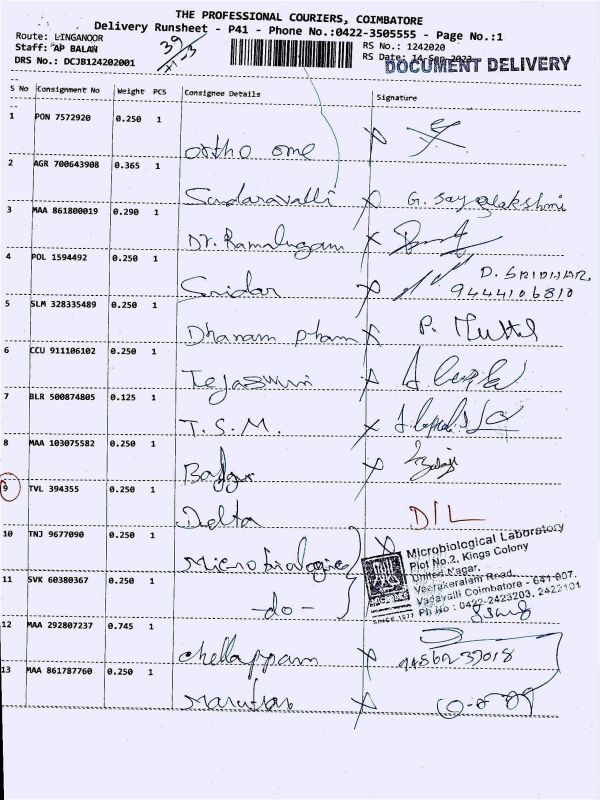 THE PROFESSIONAL COURIERS, COIMBATORE
Delivery Runsheet - P41 - Phone No.:0422-3505555 - Page No.:1
Route: LINGANOOR
Staff: AP BALAN
DRS No.: DCJB124202001
39
RS No.: 1242020
RS Date: 14-Sep-2023
DOCUMENT DELIVERY
S No Consignment No Weight PCS Consignee Details Signature
1 PON 7572920 0.250 1
ortho one
2 AGR 700643908 0.365 1
Sundaravalli X G. Jayalakshmi
3 MAA 861800019 0.290 1
Dr. Ramalingam X
4 POL 1594492 0.250 1
Sridar X D. SRIDHAR
9444106810
5 SLM 328335489 0.250 1
Dhanam pham X P. Muttu
6 CCU 911106102 0.250 1
Tejaswini X
7 BLR 500874805 0.125 1
T. S. M. X
8 MAA 103075582 0.250 1
X Balaji
9 TVL 394355 0.250 1
Delta D/L
10 TNJ 9677090 0.250 1
Microbiological X
Microbiological Laboratory
Plot No.2, Kings Colony
United Nagar,
Veerakeralam Road,
Vadavalli Coimbatore - 641 007.
Ph No : 0422-2423203, 2422101
SINCE 1977
11 SVK 60380367 0.250 1
-do-
12 MAA 292807237 0.745 1
chellappam X
13 MAA 861787760 0.250 1
X